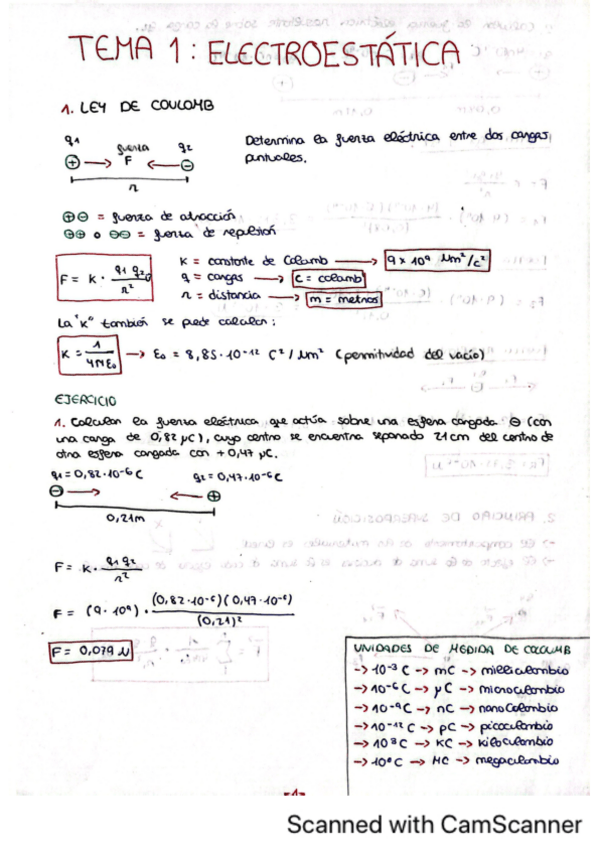 TEMA 1: ELECTROESTÁTICA
1. LEY DE COULOMB
q1 fuerza q2
⊕ → F ← ⊖
r
Determina la fuerza eléctrica entre dos cargas
puntuales.
⊕⊖ = fuerza de atracción
⊕⊕ o ⊖⊖ = fuerza de repulsión
F = K · q1 q2 / r²
K = constante de Coulomb → 9 x 10⁹ Nm²/c²
q = cargas → C = coulomb
r = distancia → m = metros
La "K" también se puede calcular:
K = 1 / 4πε0 → ε0 = 8,85·10⁻¹² C²/Nm² (permitividad del vacío)
EJERCICIO
1. Calcular la fuerza eléctrica que actúa sobre una esfera cargada ⊖ (con
una carga de 0,82 μC), cuyo centro se encuentra separado 21cm del centro de
otra esfera cargada con +0,47 μC.
q1 = 0,82·10⁻⁶ C q2 = 0,47·10⁻⁶ C
⊖ → ← ⊕
0,21m
F = K · q1 q2 / r²
F = (9·10⁹) · (0,82·10⁻⁶)(0,47·10⁻⁶) / (0,21)²
F = 0,079 N
UNIDADES DE MEDIDA DE COLOUMB
→ 10⁻³ C → mC → miliculombio
→ 10⁻⁶ C → μC → microculombio
→ 10⁻⁹ C → nC → nanoColombio
→ 10⁻¹² C → pC → picoculombio
→ 10³ C → KC → kiloculombio
→ 10⁶ C → MC → megaculombio
-1-
Scanned with CamScanner